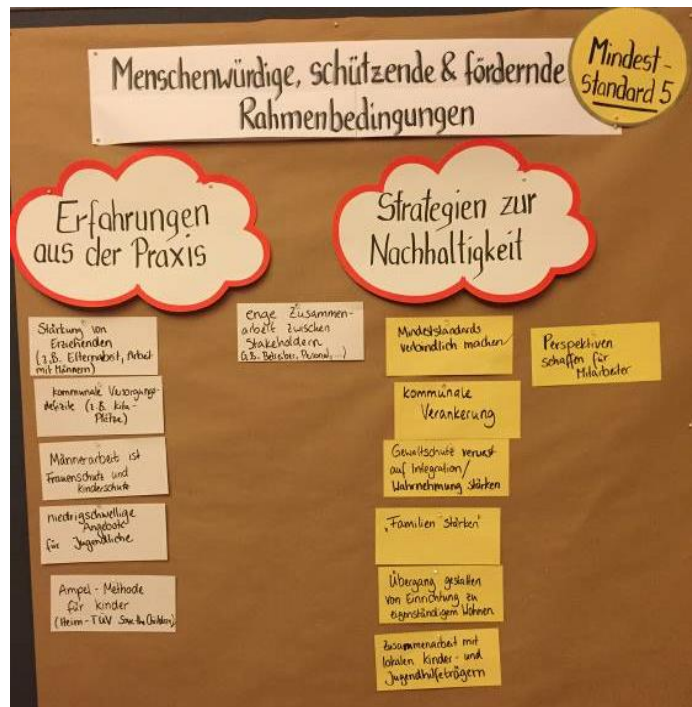 Menschenwürdige, schützende & fördernde
Rahmenbedingungen
Mindest-
Standard 5
Erfahrungen
aus der Praxis
Stärkung von
Erziehenden
(z.B. Elternarbeit, Arbeit
mit Männern)
kommunale Versorgungs-
defizite (z.B. Kita-
Plätze)
Männerarbeit ist
Frauenschutz und
Kinderschutz
niedrigschwellige
Angebote
für Jugendliche
Ampel-Methode
für Kinder
(Heim-TÜV Save the Children)
enge Zusammen-
arbeit zwischen
Stakeholdern
(z.B. Betreiber, Personal, ...)
Strategien zur
Nachhaltigkeit
Mindeststandards
verbindlich machen
kommunale
Verankerung
Gewaltschutz
auf Integration/
Wahrnehmung stärken
„Familien stärken"
Übergang gestalten
von Einrichtung zu
eigenständigem Wohnen
Zusammenarbeit mit
lokalen Kinder- und
Jugendhilfeträgern
Perspektiven
schaffen für
Mitarbeiter